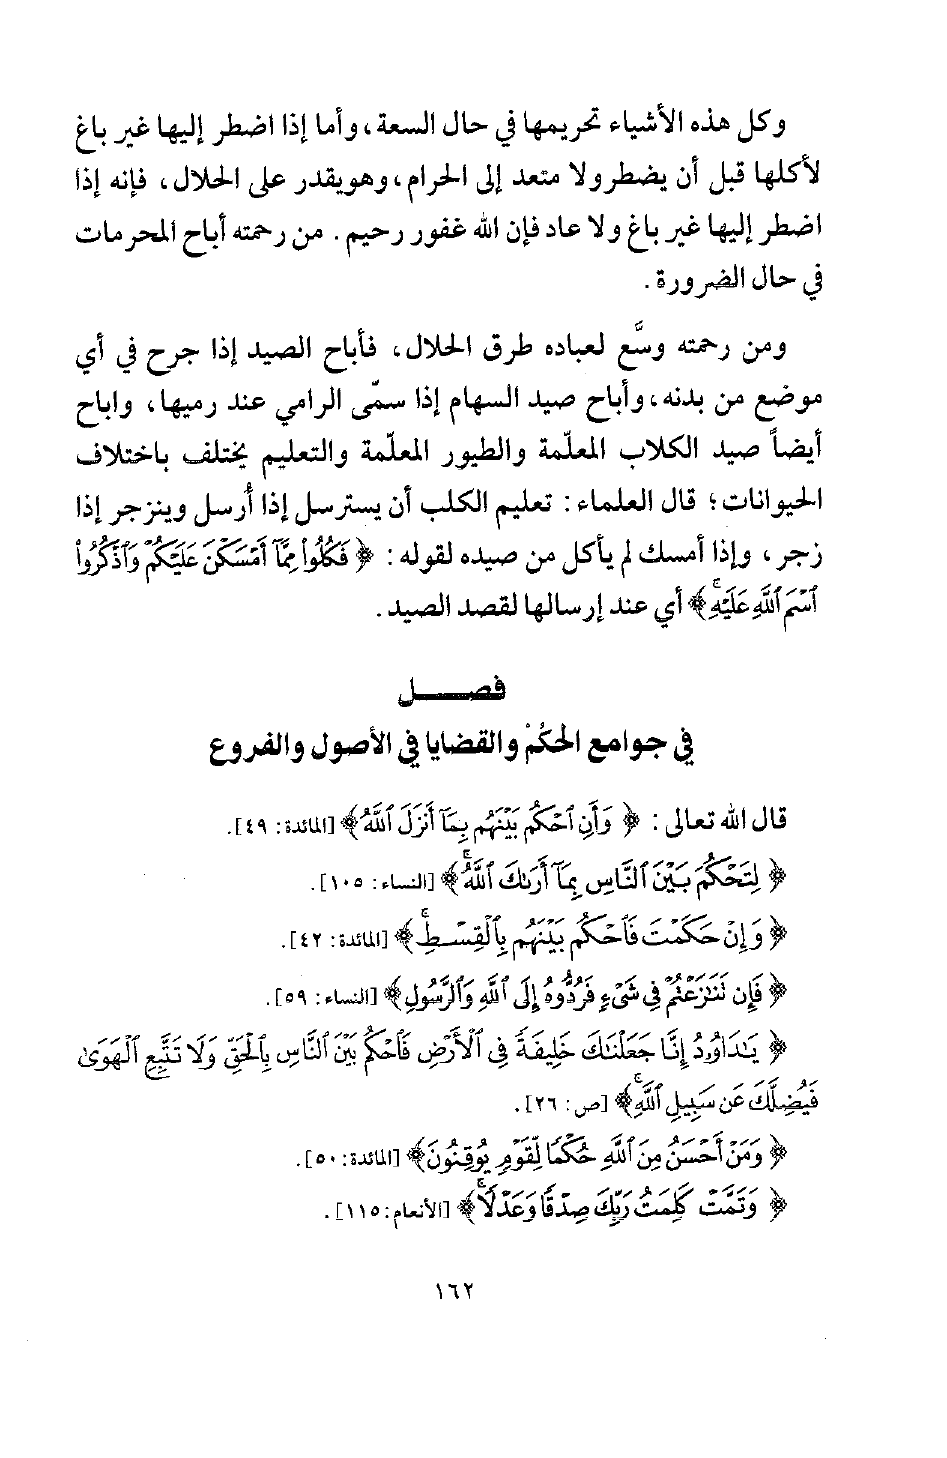 وكل هذه الأشياء تحريمها في حال السعة، وأما إذا اضطر إليها غير باغ
لأكلها قبل أن يضطر ولا متعد إلى الحرام، وهو يقدر على الحلال، فإنه إذا
اضطر إليها غير باغ ولا عاد فإن الله غفور رحيم. من رحمته أباح المحرمات
في حال الضرورة.
ومن رحمته وسَّع لعباده طرق الحلال، فأباح الصيد إذا جرح في أي
موضع من بدنه، وأباح صيد السهام إذا سمّى الرامي عند رميها، واباح
أيضاً صيد الكلاب المعلّمة والطيور المعلّمة والتعليم يختلف باختلاف
الحيوانات؛ قال العلماء: تعليم الكلب أن يسترسل إذا أُرسل وينزجر إذا
زجر، وإذا أمسك لم يأكل من صيده لقوله: ﴿فَكُلُوا۟ مِمَّآ أَمْسَكْنَ عَلَيْكُمْ وَٱذْكُرُوا۟
ٱسْمَ ٱللَّهِ عَلَيْهِ ۚ﴾ أي عند إرسالها لقصد الصيد.
فصـــــل
في جوامع الحُكُمْ والقضايا في الأصول والفروع
قال الله تعالى: ﴿وَأَنِ ٱحْكُم بَيْنَهُم بِمَآ أَنزَلَ ٱللَّهُ﴾ [المائدة: ٤٩].
﴿لِتَحْكُمَ بَيْنَ ٱلنَّاسِ بِمَآ أَرَىٰكَ ٱللَّهُ ۚ﴾ [النساء: ١٠٥].
﴿وَإِنْ حَكَمْتَ فَٱحْكُم بَيْنَهُم بِٱلْقِسْطِ ۚ﴾ [المائدة: ٤٢].
﴿فَإِن تَنَٰزَعْتُمْ فِى شَىْءٍ فَرُدُّوهُ إِلَى ٱللَّهِ وَٱلرَّسُولِ﴾ [النساء: ٥٩].
﴿يَٰدَاوُۥدُ إِنَّا جَعَلْنَٰكَ خَلِيفَةً فِى ٱلْأَرْضِ فَٱحْكُم بَيْنَ ٱلنَّاسِ بِٱلْحَقِّ وَلَا تَتَّبِعِ ٱلْهَوَىٰ
فَيُضِلَّكَ عَن سَبِيلِ ٱللَّهِ ۚ﴾ [ص: ٢٦].
﴿وَمَنْ أَحْسَنُ مِنَ ٱللَّهِ حُكْمًا لِّقَوْمٍ يُوقِنُونَ﴾ [المائدة: ٥٠].
﴿وَتَمَّتْ كَلِمَتُ رَبِّكَ صِدْقًا وَعَدْلًا ۚ﴾ [الأنعام: ١١٥].
١٦٢